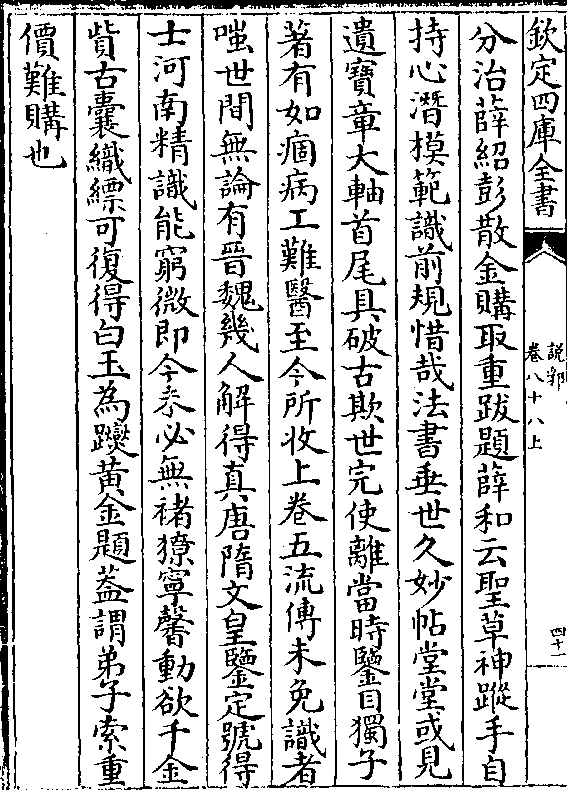 欽定四庫全書
說郛
卷八十八上
四十一
分治薛紹彭散金購取重跋題薛和云聖草神蹤手自
持心潛模範識前規惜哉法書垂世久妙帖堂堂或見
遺寶章大軸首尾具破古欺世完使離當時鑒目獨子
著有如痼病工難醫至今所收上卷五流傳未免識者
嗤世間無論有晉魏幾人解得真唐隋文皇鑒定號得
士河南精識能窮微即今未必無褚獠寧馨動欲千金
貲古囊織縹可復得白玉為躞黃金題葢謂弟子索重
價難購也